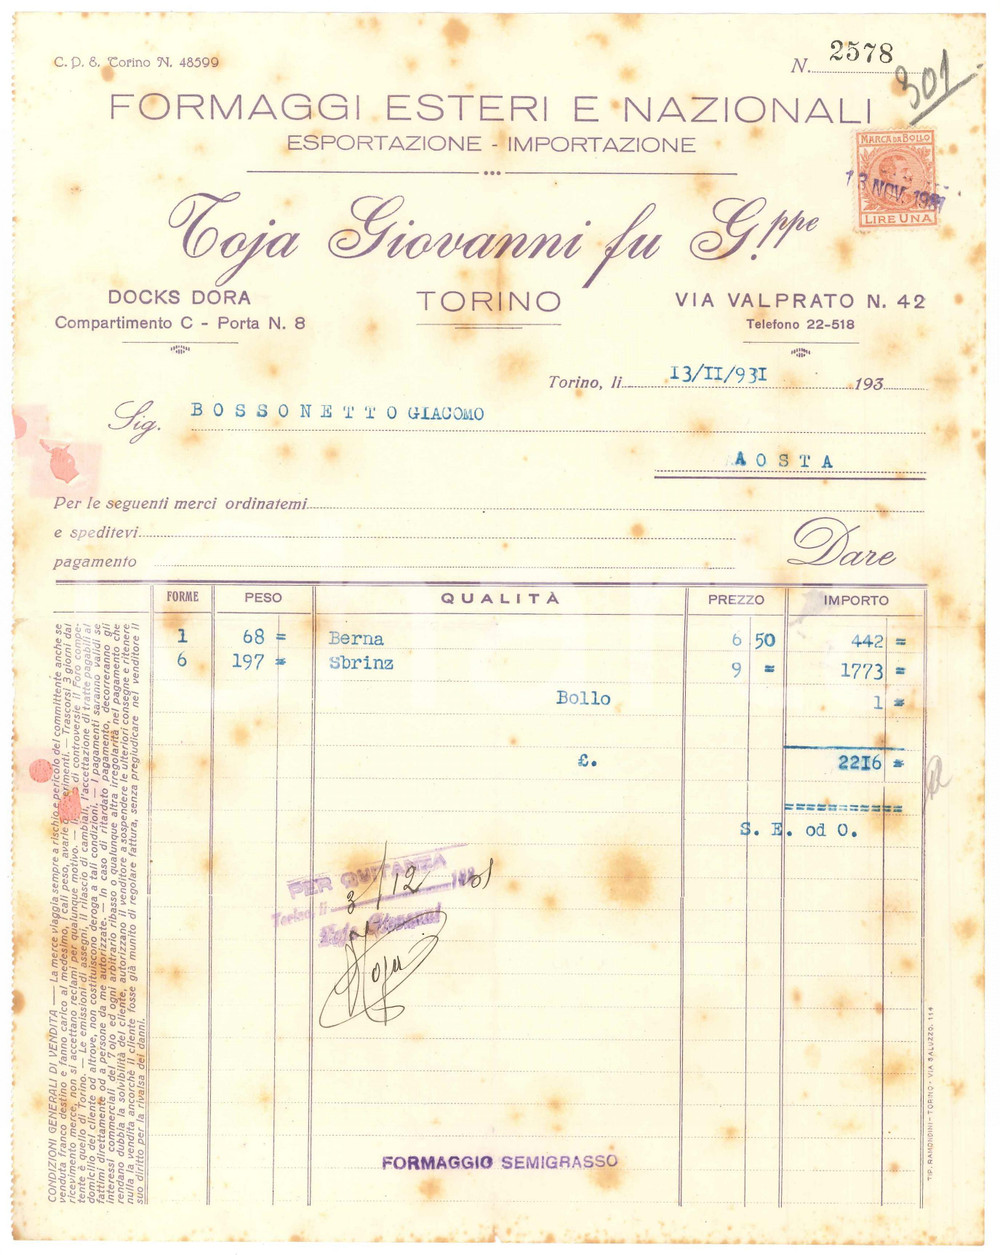 C. P. E. Torino N. 48599
N. 2578
301
FORMAGGI ESTERI E NAZIONALI
ESPORTAZIONE - IMPORTAZIONE
MARCA DA BOLLO
13 NOV. 1931
LIRE UNA
Toja Giovanni fu G.ppe
DOCKS DORA
TORINO
VIA VALPRATO N. 42
Compartimento C - Porta N. 8
Telefono 22-518
Torino, li 13/II/931 193
Sig. BOSSONETTO GIACOMO
AOSTA
Per le seguenti merci ordinatemi
e speditevi
Dare
pagamento
FORME PESO QUALITÀ PREZZO IMPORTO
1 68 = Berna 6 50 442 =
6 197 = Sbrinz 9 = 1773 =
Bollo 1 =
£. 2216 =
===========
S. E. od O.
PER QUITANZA
Torino, li 3/12 1931
Toja Giovanni
Toja
FORMAGGIO SEMIGRASSO
CONDIZIONI GENERALI DI VENDITA — La merce viaggia sempre a rischio e pericolo del committente anche se
venduta franco destino e fanno carico al medesimo, i cali peso, avarie o deperimenti. — Trascorsi 3 giorni dal
ricevimento merce, non si accettano reclami per qualunque motivo. — di controversie il Foro compe-
tente è quello di Torino. — Le emissioni di assegni, il rilascio di cambiali, l'accettazione di tratte pagabili al
domicilio del cliente od altrove, non costituiscono deroga a tali condizioni. — I pagamenti saranno validi se
fattimi direttamente od a persone da me autorizzate. — In caso di ritardato pagamento, decorreranno gli
interessi commerciali del 7 o/o ed ogni arbitrario ribasso o qualunque altra irregolarità nel pagamento che
rendano dubbia la solvibilità del cliente, autorizzano il venditore a sospendere le ulteriori consegne e ritenere
nulla la vendita ancorchè il cliente fosse già munito di regolare fattura, senza pregiudicare nel venditore il
suo diritto per la rivalsa dei danni.
TIP. RAMONDINI - TORINO - VIA SALUZZO, 11